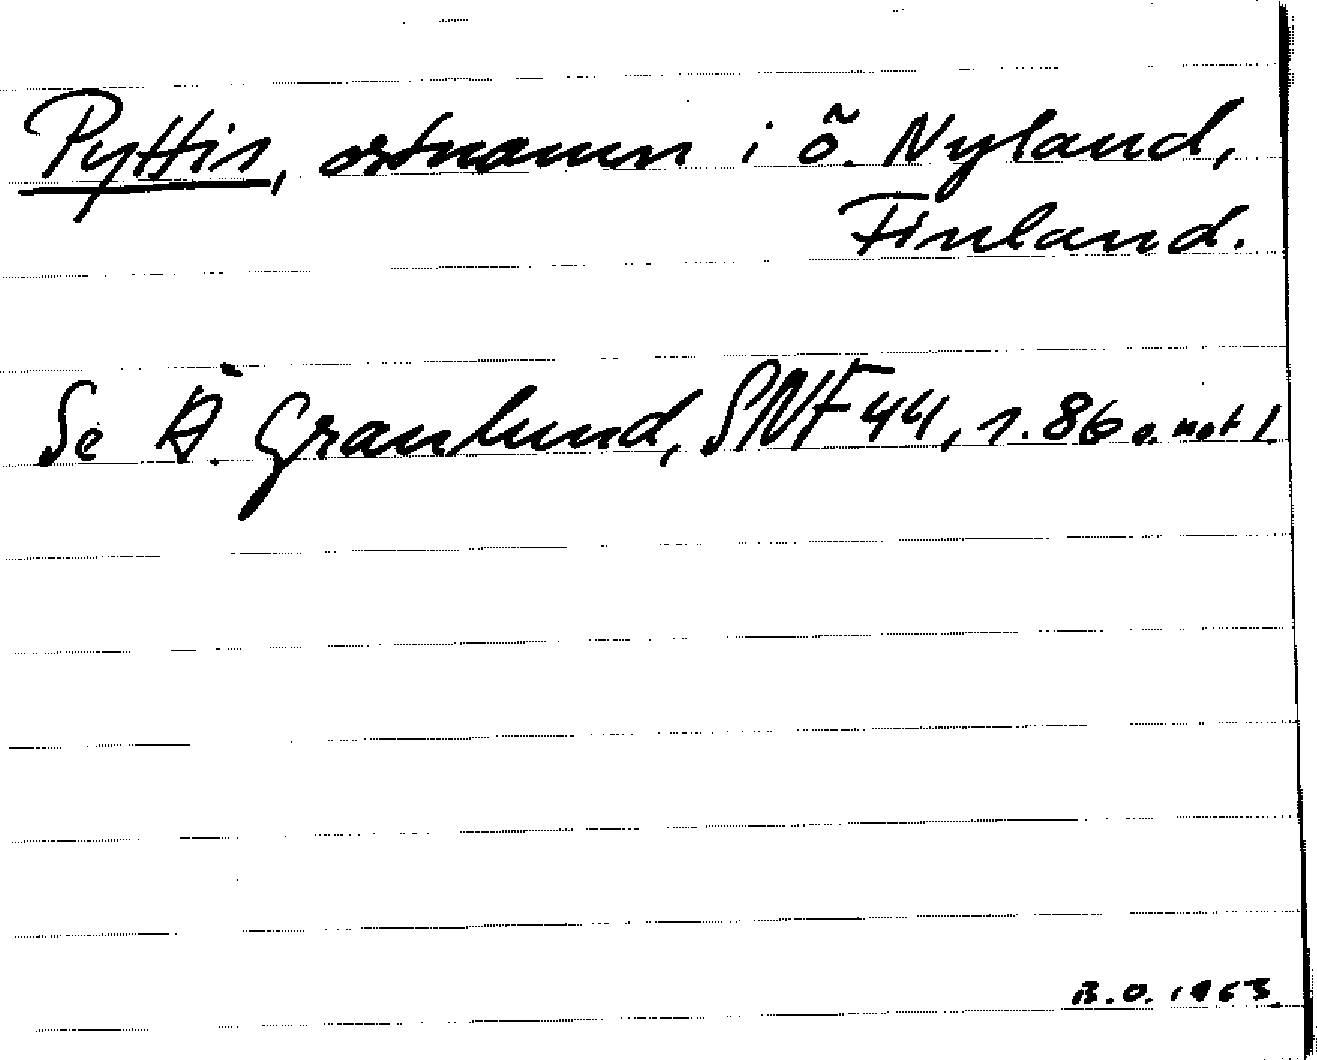 Pyttis, ortnamn i ö. Nyland,
Finland.
Se Å. Granlund, SNF 44, s. 86 o. not 1.
B.O. 1963